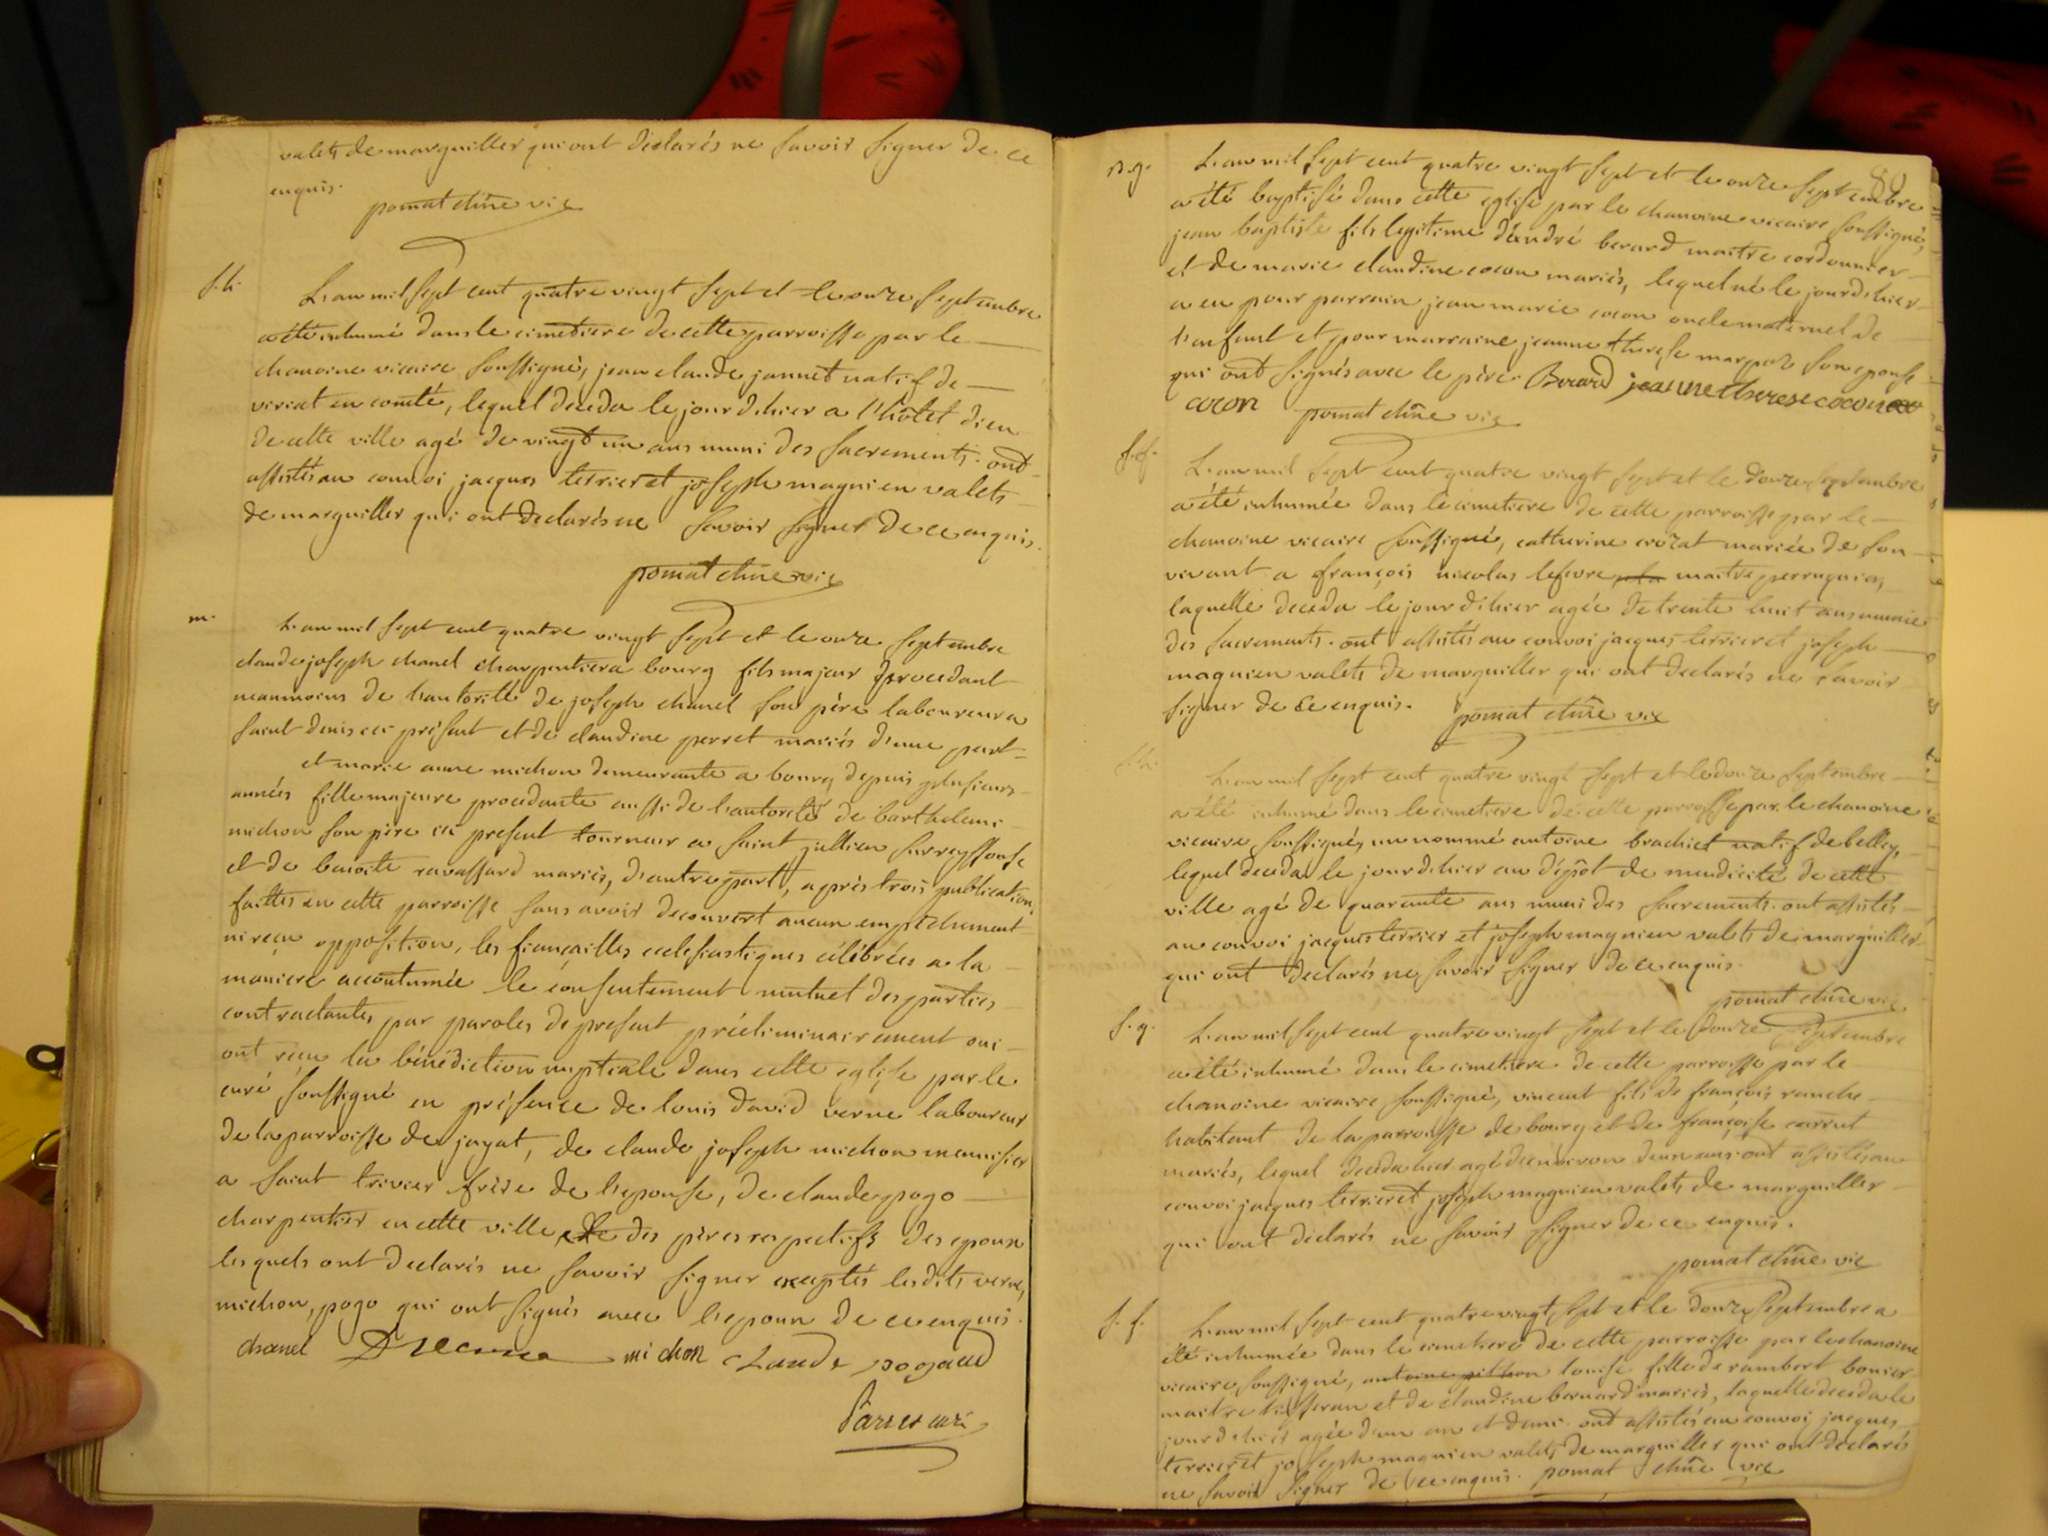 valets de marguiller qui ont declarés ne savoir signer de ce
enquis.
pomat chne vic
s.h.
L'an mil sept cent quatre vingt sept et le onze septembre
a été inhumé dans le cimetiere de cette parroisse par le
chanoine vicaire soussigné, jean claude jannet natif de
viriat en comté, lequel deceda le jour d'hier a l'hôtel dieu
de cette ville agé de vingt un ans muni des sacrements. ont
assistés au convoi jacques terrier et joseph magnien valets
de marguiller qui ont declarés ne savoir signer de ce enquis.
pomat chne vic
m.
L'an mil sept cent quatre vingt sept et le onze septembre
claude joseph chanel charpentier a bourg fils majeur procedant
neanmoins de l'autorité de joseph chanel son père laboureur a
saint denis ici présent et de claudine perret mariés d'une part
et marie anne michon demeurante a bourg depuis plusieurs
années fille majeure procedante aussi de l'autorité de barthelemi
michon son père ici present tourneur a saint jullien sur reyssouse
et de benoite ravassard mariés, d'autre part, après trois publications
faittes en cette parroisse sans avoir decouvert aucun empêchement
ni reçu opposition, les fiançailles eclesiastiques célébrées a la
maniere accoutumée le consentement mutuel des parties
contractantes par paroles de present préeliminairement oui
ont reçu la bénédiction nuptiale dans cette eglise par le
curé soussigné en présence de louis david verne laboureur
de la parroisse de jayat, de claude joseph michon menuisier
a saint trivier frère de l'epouse, de claude pogo
charpentier en cette ville, et des pères respectifs des epoux
lesquels ont declarés ne savoir signer exceptés lesdits verne,
michon, pogo qui ont signés avec l'epoux de ce enquis.
chanel D verne michon claude pogaud
curé
80
B.g.
L'an mil sept cent quatre vingt sept et le onze septembre
a été baptisé dans cette eglise par le chanoine vicaire soussigné,
jean baptiste fils legitime d'andré berard maitre cordonnier
et de marie claudine cocon mariés, lequel né le jour d'hier
a eu pour parrain jean marie cocon oncle maternel de
l'enfant et pour marraine jeanne therese son epouse
qui ont signés avec le père. Berard jeanne therese cocon
cocon pomat chne vic
s.f.
L'an mil sept cent quatre vingt sept et le douze septembre
a été inhumée dans le cimetiere de cette parroisse par le
chanoine vicaire soussigné, catherine crozat mariée de son
vivant a françois nicolas lefevre maitre perruquier,
laquelle deceda le jour d'hier agée de trente huit ans munie
des sacrements. ont assistés au convoi jacques terrier et joseph
magnien valets de marguiller qui ont declarés ne savoir
signer de ce enquis. pomat chne vic
s.h.
L'an mil sept cent quatre vingt sept et le douze septembre
a été inhumé dans le cimetiere de cette parroisse par le chanoine
vicaire soussigné, un nommé antoine brachiet natif de belley,
lequel deceda le jour d'hier au dépôt de mendicité de cette
ville agé de quarante ans muni des sacrements. ont assistés
au convoi jacques terrier et joseph magnien valets de marguiller
qui ont declarés ne savoir signer de ce enquis.
pomat chne vic
s.g.
L'an mil sept cent quatre vingt sept et le douze septembre
a été inhumé dans le cimetiere de cette parroisse par le
chanoine vicaire soussigné, vincent fils de françois ranche
habitant de la parroisse de bourg et de françoise carrut
mariés, lequel deceda hier agé d'environ deux ans ont assistés au
convoi jacques terrier et joseph magnien valets de marguiller
qui ont declarés ne savoir signer de ce enquis.
pomat chne vic
s.f.
L'an mil sept cent quatre vingt sept et le douze septembre a
été inhumée dans le cimetiere de cette parroisse par le chanoine
vicaire soussigné, louise fille de rambert bonier
maitre tisseran et de claudine bernard mariés, laquelle deceda le
jour d'hier agée d'un an et demi. ont assistés au convoi jacques
terrier et joseph magnien valets de marguiller qui ont declarés
ne savoir signer de ce enquis. pomat chne vic